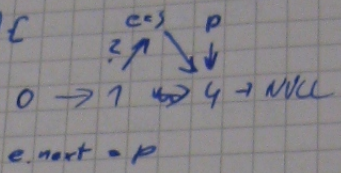 { e=3 p
?
0 → 1 → 4 → NULL
e.next = p